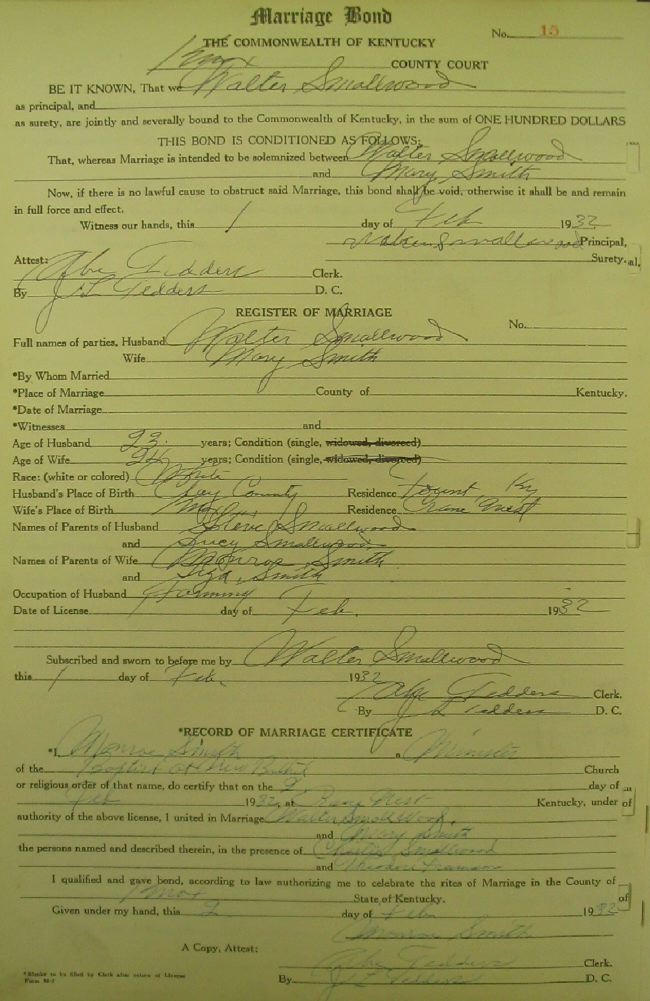 Marriage Bond
No. 15
THE COMMONWEALTH OF KENTUCKY
Knox COUNTY COURT
BE IT KNOWN, That we Walter Smallwood
as principal, and
as surety, are jointly and severally bound to the Commonwealth of Kentucky, in the sum of ONE HUNDRED DOLLARS
THIS BOND IS CONDITIONED AS FOLLOWS:
That, whereas Marriage is intended to be solemnized between Walter Smallwood
and Mary Smith
Now, if there is no lawful cause to obstruct said Marriage, this bond shall be void, otherwise it shall be and remain
in full force and effect.
Witness our hands, this 1 day of Feb 1932
Walter Smallwood Principal,
Surety.
Attest:
Abe Tedders Clerk.
By J L Tedders D. C.
REGISTER OF MARRIAGE
No.
Full names of parties, Husband Walter Smallwood
Wife Mary Smith
*By Whom Married
*Place of Marriage County of Kentucky.
*Date of Marriage
*Witnesses and
Age of Husband 23 years; Condition (single, widowed, divorced)
Age of Wife 24 years; Condition (single, widowed, divorced)
Race: (white or colored) White
Husband's Place of Birth Clay County Residence Fount, Ky
Wife's Place of Birth Knox Residence Crane Nest
Names of Parents of Husband Steve Smallwood
and Lucy Smallwood
Names of Parents of Wife Monroe Smith
and Smith
Occupation of Husband Farming
Date of License 1 day of Feb 1932
Subscribed and sworn to before me by Walter Smallwood
this 1 day of Feb. 1932
Abe Tedders Clerk.
By J L Tedders D. C.
*RECORD OF MARRIAGE CERTIFICATE
*I, Monroe Smith a Minister
of the Baptist Church
or religious order of that name, do certify that on the 2 day of
Feb 1932, at Crane Nest Kentucky, under
authority of the above license, I united in Marriage Walter Smallwood
and Mary Smith
the persons named and described therein, in the presence of Charlie Smallwood
and
I qualified and gave bond, according to law authorizing me to celebrate the rites of Marriage in the County of
Knox State of Kentucky.
Given under my hand, this 2 day of Feb 1932
Monroe Smith
A Copy, Attest:
Abe Tedders Clerk.
By J L Tedders D. C.
*Blanks to be filled by Clerk after return of License